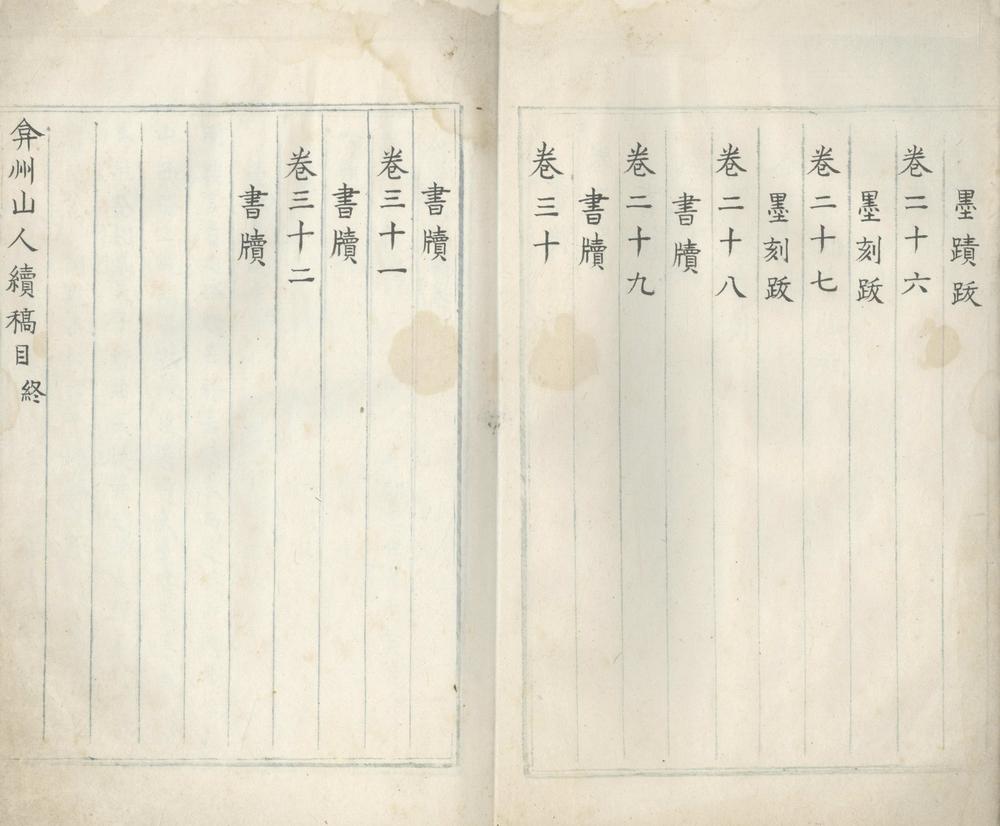 墨蹟跋
卷二十六
墨刻跋
卷二十七
墨刻跋
卷二十八
書牘
卷二十九
書牘
卷三十
書牘
卷三十一
書牘
卷三十二
書牘
弇州山人續稿目終